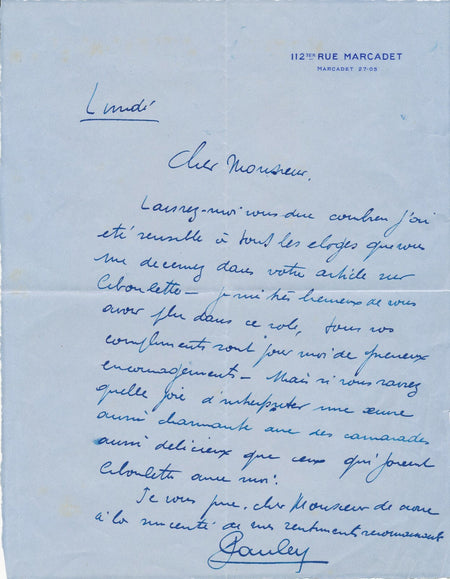 112TER RUE MARCADET
MARCADET 27-05
Lundi
Cher Monsieur,
Laissez-moi vous dire combien j'ai
été sensible à tout les eloges que vous
me decernez dans votre article sur
Ciboulette - je suis très heureux de vous
avoir plu dans ce role, tous vos
compliments sont pour moi de precieux
encouragements - Mais si vous saviez
quelle joie d'interpreter une œuvre
aussi charmante avec des camarades
aussi delicieux que ceux qui jouent
Ciboulette avec moi.
Je vous prie, cher Monsieur de croire
à la sincerité de mes sentiments reconnaissants
Pauley